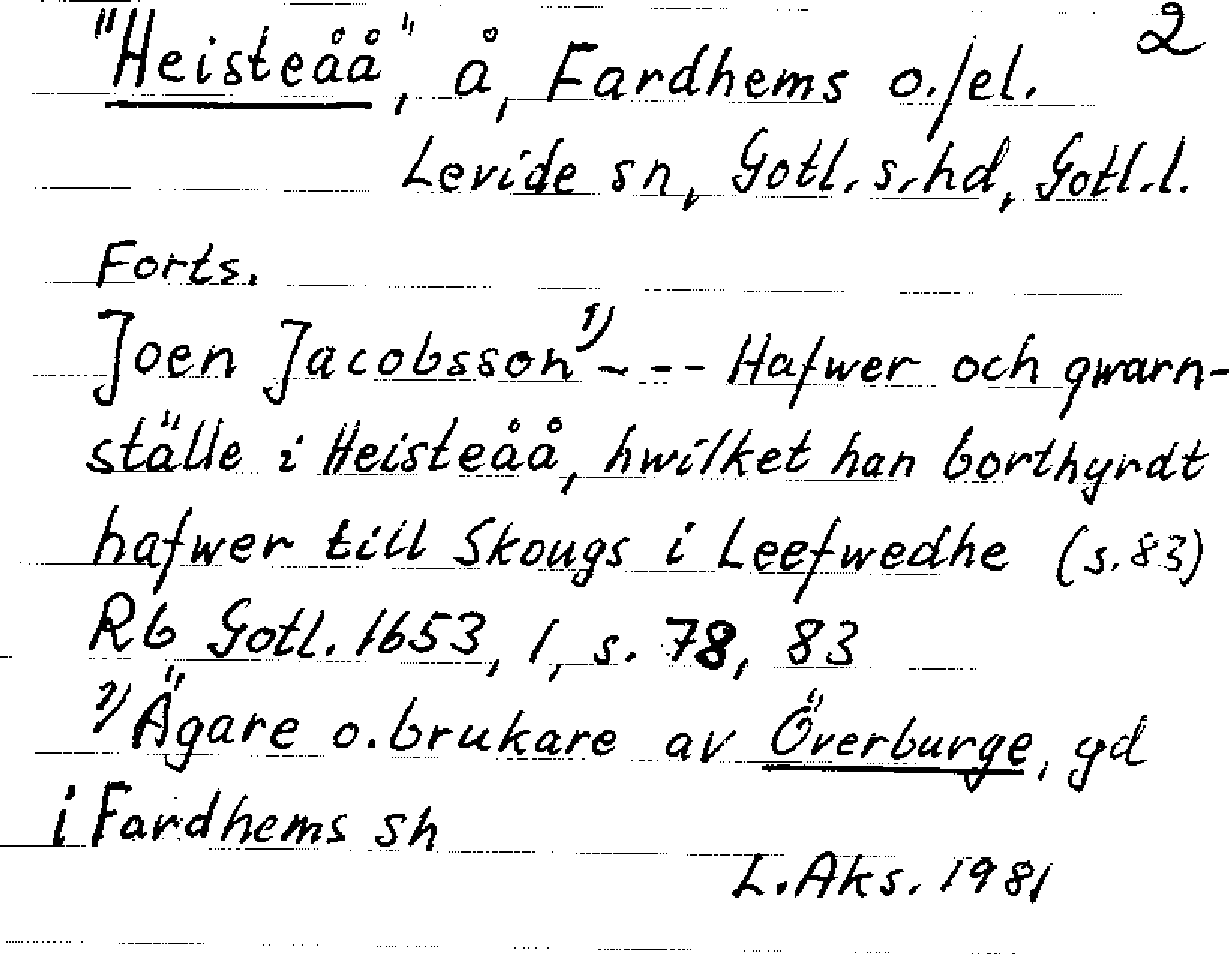 2
"Heisteåå", å, Fardhems o./el.
Levide sn, Gotl. s. hd, Gotl. l.
Forts.
Joen Jacobsson¹⁾ - - - Hafwer och qwarn-
ställe i Heisteåå, hwilket han borthyrdt
hafwer till Skougs i Leefwedhe (s. 83)
Rb Gotl. 1653, 1, s. 78, 83
¹⁾ Ägare o. brukare av Överburge, gd
i Fardhems sn
L. Aks. 1981